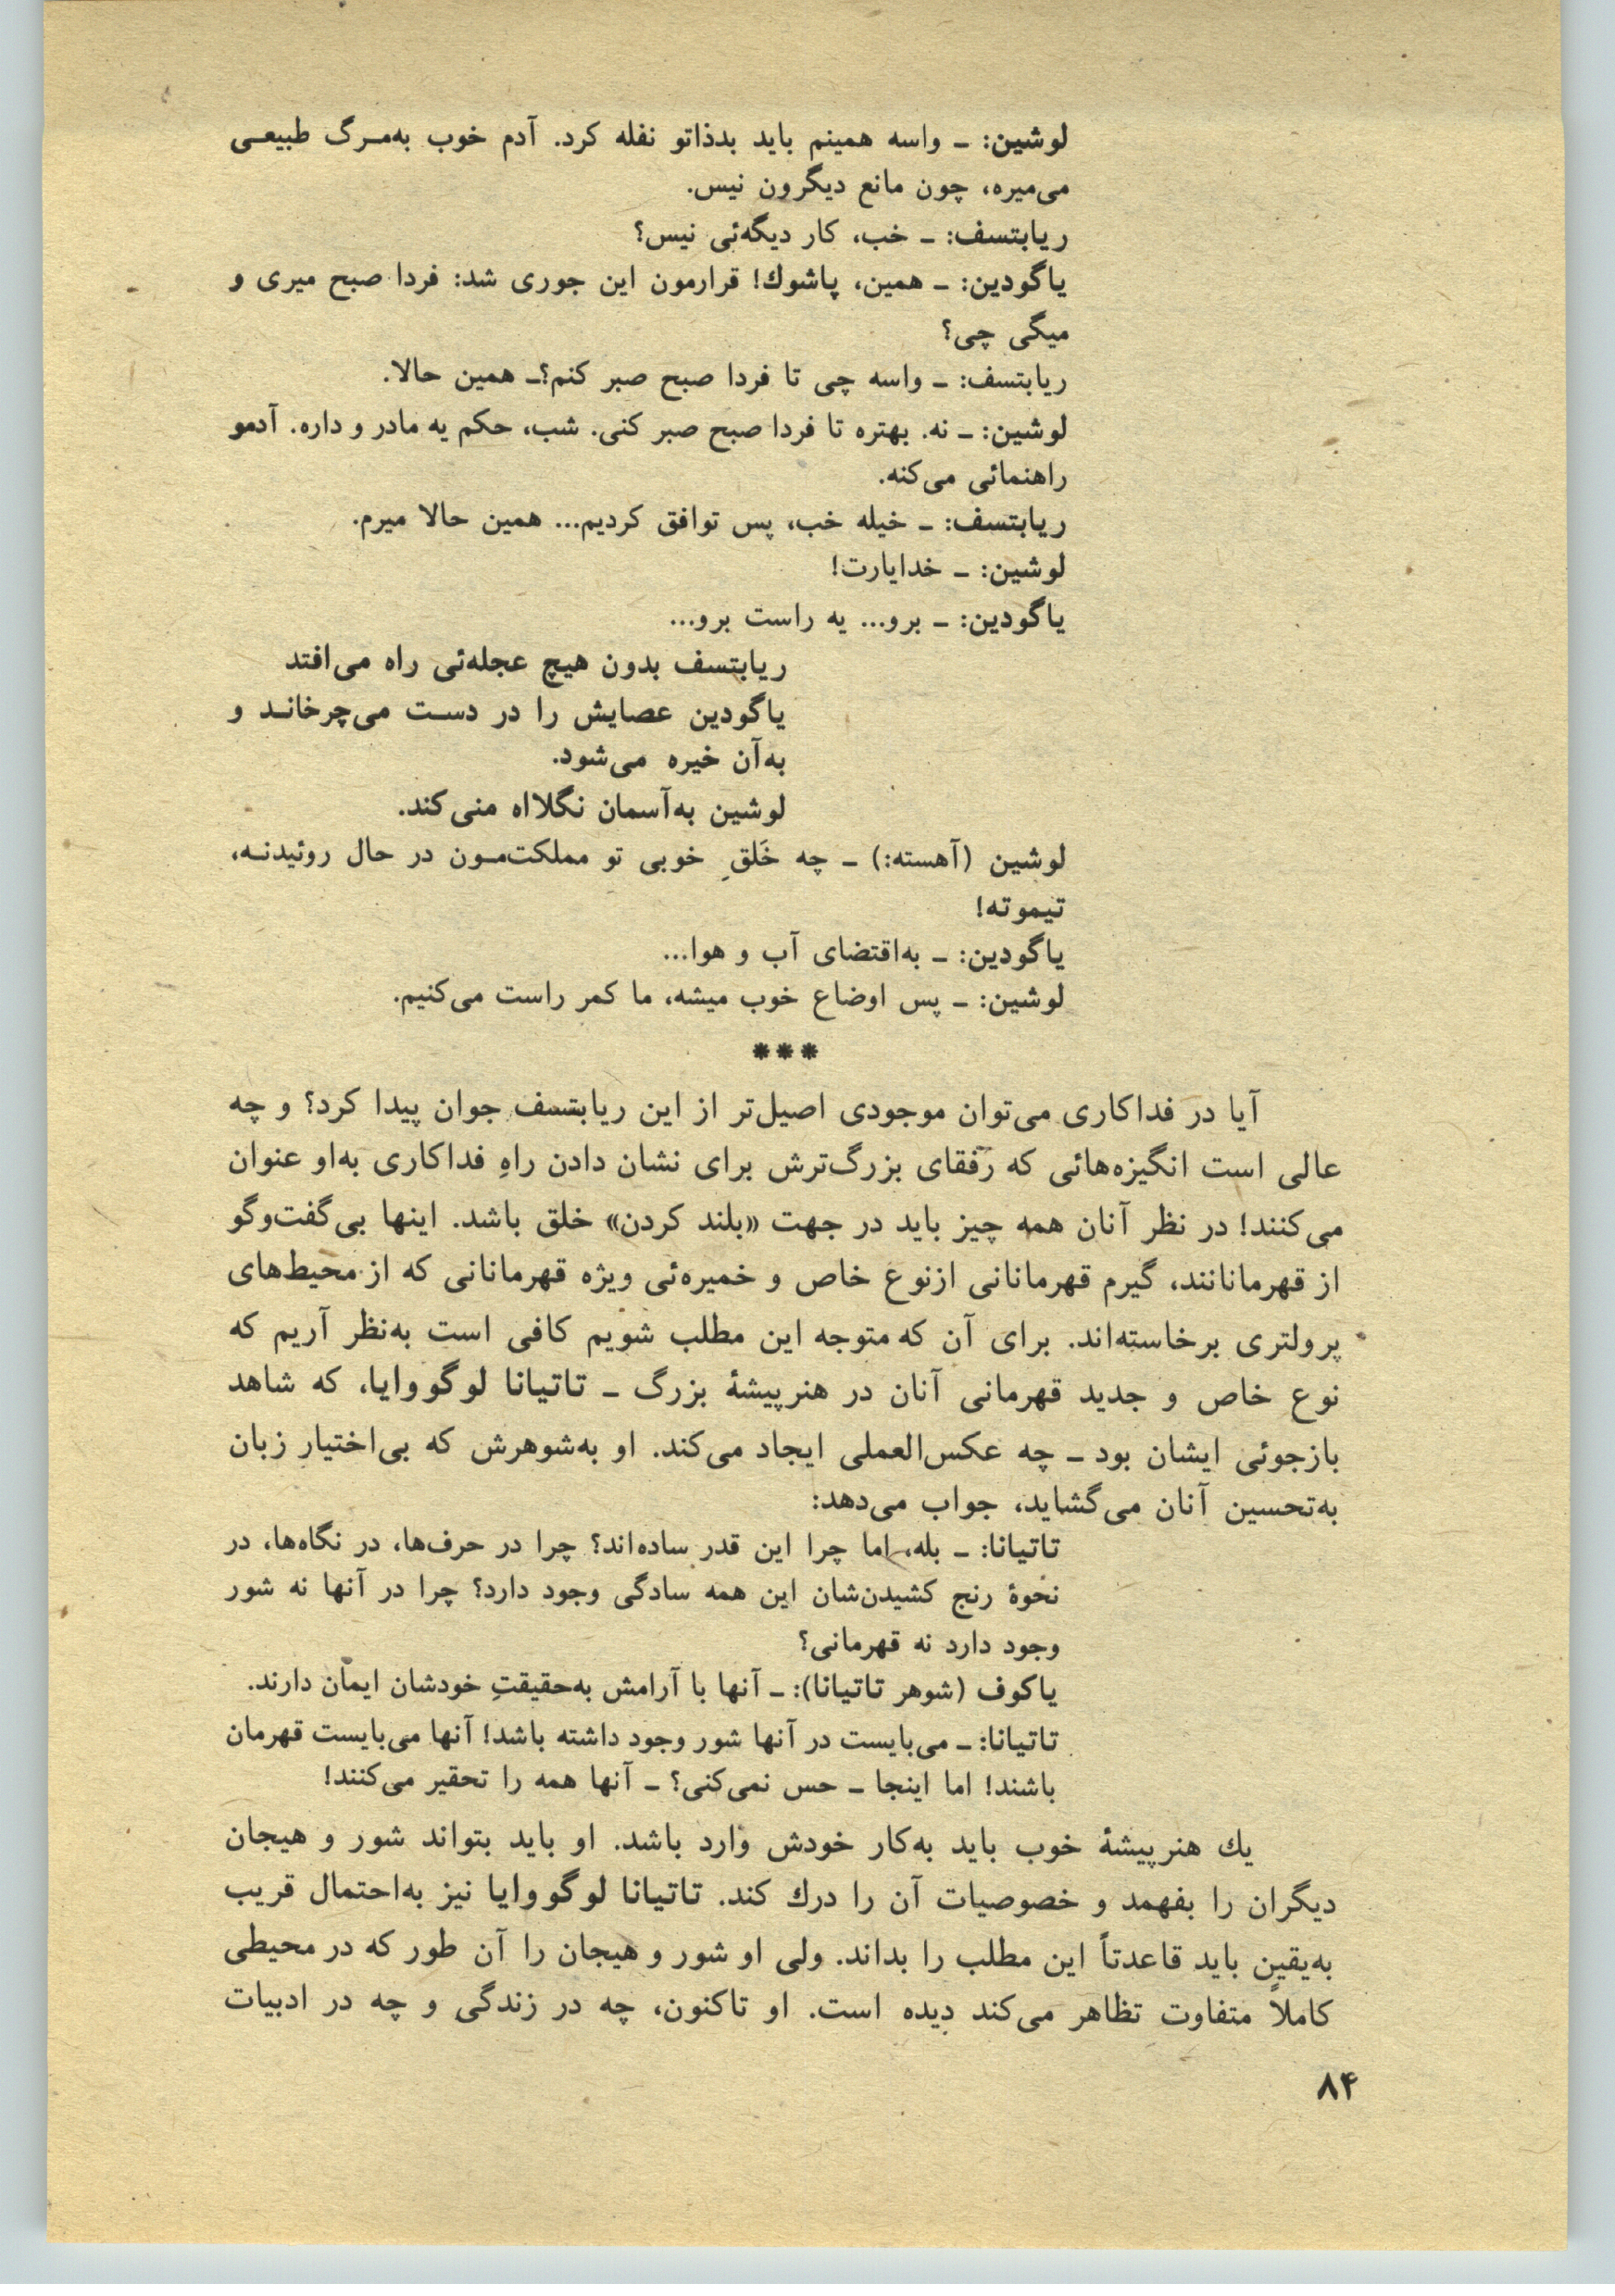 لوشین: ـ واسه همینم باید بدذاتو نفله کرد. آدم خوب به‌مـرگ طبیعـی
می‌میره، چون مانع دیگرون نیس.
ریابتسف: ـ خب، کار دیگه‌ئی نیس؟
یاگودین: ـ همین، پاشوك! قرارمون این جوری شد: فردا صبح میری و
میگی چی؟
ریابتسف: ـ واسه چی تا فردا صبح صبر کنم؟ـ همین حالا.
لوشین: ـ نه. بهتره تا فردا صبح صبر کنی. شب، حکم یه مادر و داره. آدمو
راهنمائی می‌کنه.
ریابتسف: ـ خیله خب، پس توافق کردیم... همین حالا میرم.
لوشین: ـ خدایارت!
یاگودین: ـ برو... یه راست برو...
ریابتسف بدون هیچ عجله‌ئی راه می‌افتد
یاگودین عصایش را در دسـت می‌چرخانـد و
به‌آن خیره می‌شود.
لوشین به‌آسمان نگلااه منی‌کند.
لوشین (آهسته:) ـ چه خَلقِ خوبی تو مملکت‌مـون در حال روئیدنـه،
تیموته!
یاگودین: ـ به‌اقتضای آب و هوا...
لوشین: ـ پس اوضاع خوب میشه، ما کمر راست می‌کنیم.
***
آیا در فداکاری می‌توان موجودی اصیل‌تر از این ریابتسف جوان پیدا کرد؟ و چه
عالی است انگیزه‌هائی که رفقای بزرگ‌ترش برای نشان دادن راهِ فداکاری به‌او عنوان
می‌کنند! در نظر آنان همه چیز باید در جهت «بلند کردن» خلق باشد. اینها بی‌گفت‌وگو
از قهرمانانند، گیرم قهرمانانی ازنوع خاص و خمیره‌ئی ویژه قهرمانانی که از محیط‌های
پرولتری برخاسته‌اند. برای آن که متوجه این مطلب شویم کافی است به‌نظر آریم که
نوع خاص و جدید قهرمانی آنان در هنرپیشهٔ بزرگ ـ تاتیانا لوگووایا، که شاهد
بازجوئی ایشان بود ـ چه عکس‌العملی ایجاد می‌کند. او به‌شوهرش که بی‌اختیار زبان
به‌تحسین آنان می‌گشاید، جواب می‌دهد:
تاتیانا: ـ بله، اما چرا این قدر ساده‌اند؟ چرا در حرف‌ها، در نگاه‌ها، در
نحوهٔ رنج کشیدن‌شان این همه سادگی وجود دارد؟ چرا در آنها نه شور
وجود دارد نه قهرمانی؟
یاکوف (شوهر تاتیانا): ـ آنها با آرامش به‌حقیقتِ خودشان ایمان دارند.
تاتیانا: ـ می‌بایست در آنها شور وجود داشته باشد! آنها می‌بایست قهرمان
باشند! اما اینجا ـ حس نمی‌کنی؟ ـ آنها همه را تحقیر می‌کنند!
یك هنرپیشهٔ خوب باید به‌کار خودش وارد باشد. او باید بتواند شور و هیجان
دیگران را بفهمد و خصوصیات آن را درك کند. تاتیانا لوگووایا نیز به‌احتمال قریب
به‌یقین باید قاعدتاً این مطلب را بداند. ولی او شور و هیجان را آن طور که در محیطی
کاملاً متفاوت تظاهر می‌کند دیده است. او تاکنون، چه در زندگی و چه در ادبیات
۸۴